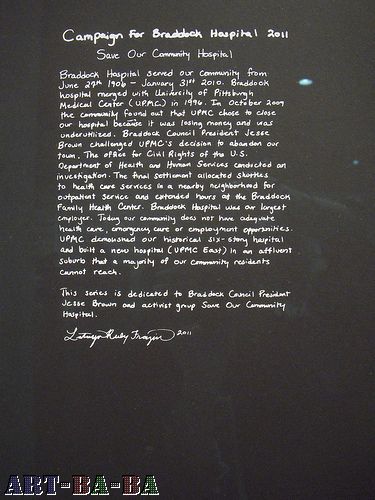 Campaign For Braddock Hospital 2011
Save Our Community Hospital
Braddock Hospital served our community from
June 27th 1906 - January 31st 2010. Braddock
hospital merged with University of Pittsburgh
Medical Center (UPMC) in 1996. In October 2009
the community found out that UPMC chose to close
our hospital because it was losing money and was
underutilized. Braddock Council President Jesse
Brown challenged UPMC's decision to abandon our
town. The office for Civil Rights of the U.S.
Department of Health and Human Services conducted an
investigation. The final settlement allocated shuttles
to health care services in a nearby neighborhood for
outpatient service and extended hours at the Braddock
Family Health Center. Braddock Hospital was our largest
employer. Today our community does not have adequate
health care, emergency care or employment opportunities.
UPMC demolished our historical six-story hospital
and built a new hospital (UPMC East) in an affluent
suburb that a majority of our community residents
cannot reach.
This series is dedicated to Braddock Council President
Jesse Brown and activist group Save Our Community
Hospital.
LaToya Ruby Frazier 2011
ART-BA-BA